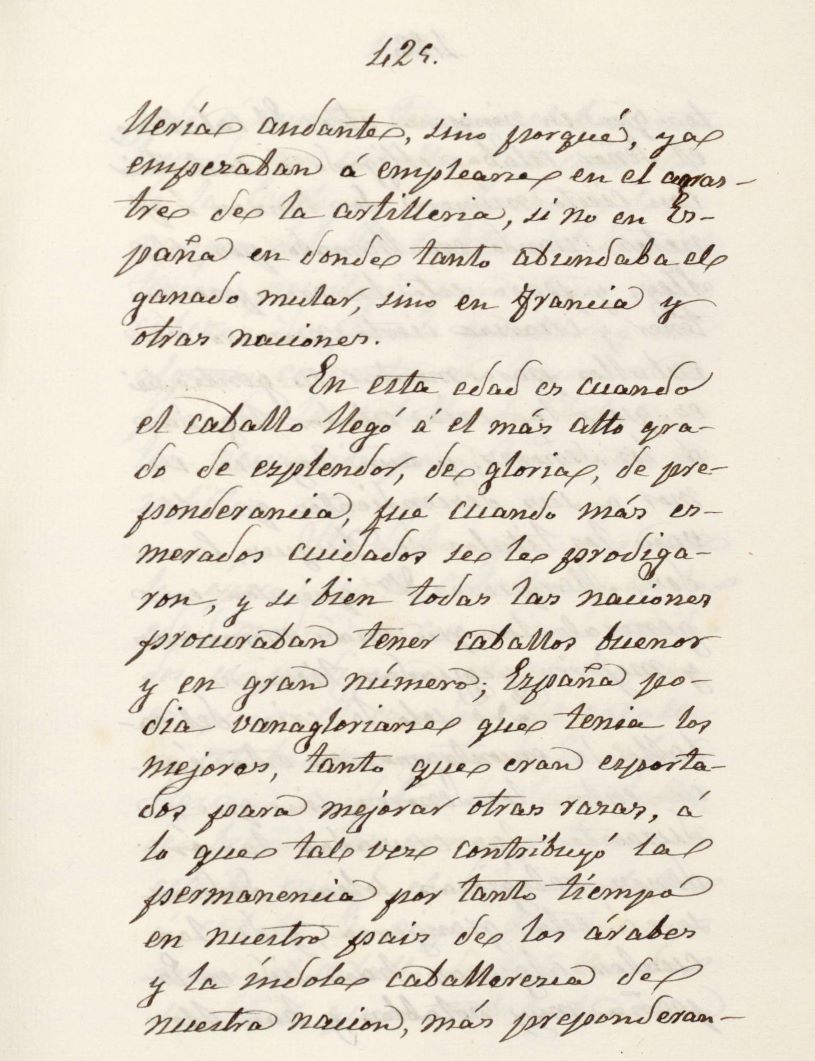 425.
llería andante, sino porqué, ya
empezaban á emplearse en el arras-
tre de la artilleria, si no en Es-
paña en donde tanto abundaba el
ganado mular, sino en Francia y
otras naciones.
En esta edad es cuando
el caballo llegó á el más alto gra-
do de esplendor, de gloria, de pre-
ponderancia, fué cuando más es-
merados cuidados se le prodiga-
ron, y si bien todas las naciones
procuraban tener caballos buenos
y en gran número; España po-
dia vanagloriarse que tenia los
mejores, tanto que eran esporta-
dos para mejorar otras razas, á
lo que tal vez contribuyó la
permanencia por tanto tiempo
en nuestro pais de los árabes
y la índole caballerezca de
nuestra nacion, más preponderan-